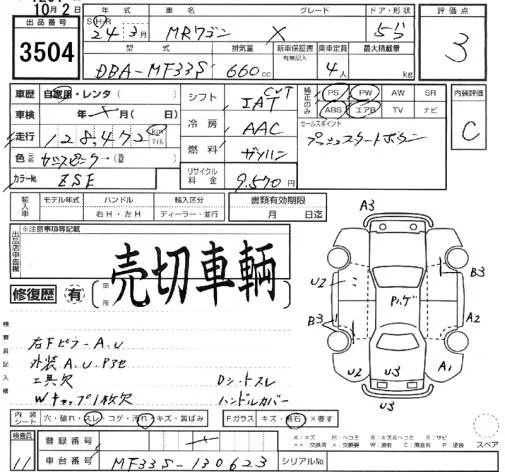 10月2日
出品番号
3504
年式 車名 グレード ドア・形状 評価点
S H R
24年3月 MRワゴン X 5ドア 3
型式 排気量 新車保証書 有無記入 乗車定員 最大積載量
DBA-MF33S 660cc 4人 kg
車歴 自家用・レンタ( ) シフト CVT IAT 純正のみ PS PW AW SR 内装評価
車検 年 月( 日) 冷房 AAC ABS エアB TV ナビ C
走行 128,472 km マイル 燃料 ガソリン セールスポイント
プッシュスタートボタン
色 元色 カシスピンク→(替 )
カラーNo ZSE リサイクル料金 9,570円
輸入車 モデル年式 ハンドル 輸入区分 書類有効期限
右H・左H ディーラー・並行 月 日迄
出品店申告欄 ※注意事項等記載
売切車輌
修復歴 有 箇所
A3
B3
U2
Pレゲ
B3
A2
U2
A1
U3
U3
検査員記入欄
右Fピラー A.U
外装A.U.P3セ
工具欠
Wキャップ1枚欠
Dシートスレ
ハンドルカバー
内装シート 穴・破れ・スレ・コゲ・汚れ・キズ・黄ばみ Fガラス キズ・飛石・×要す
検査員 11
登録番号
車台番号 MF33S-130623 シリアルNo
A:キズ M:ヘコミ B:キズ&ヘコミ S:サビ
XX:交換済 X:交換要 W:波有 C:腐食有 P:塗装
スペア